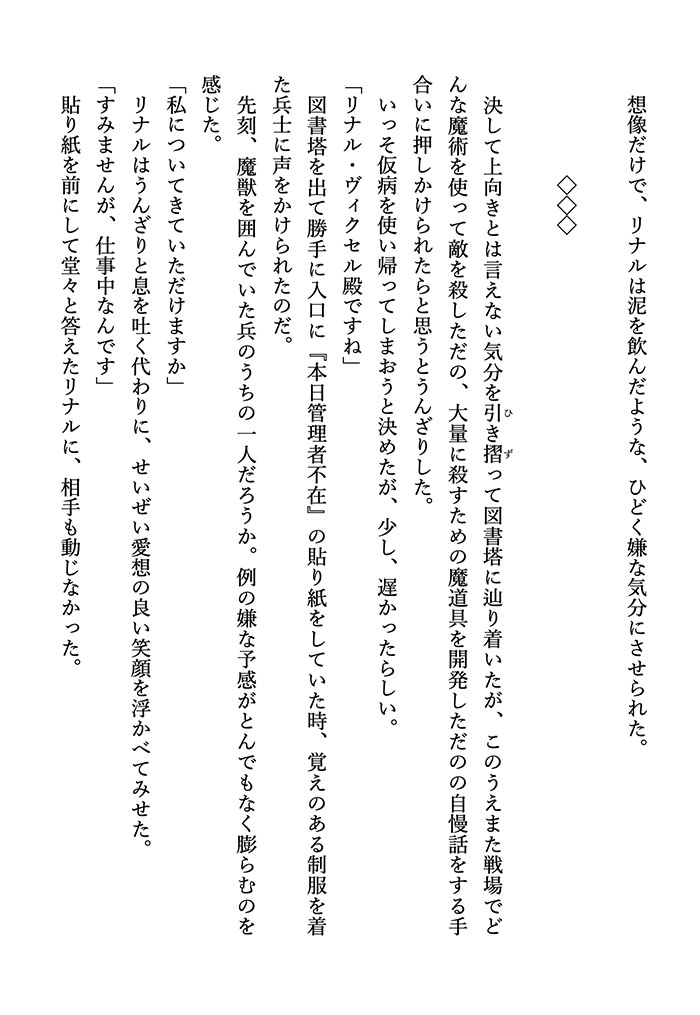 想像だけで、リナルは泥を飲んだような、ひどく嫌な気分にさせられた。
◇◇◇
決して上向きとは言えない気分を引き摺って図書塔に辿り着いたが、このうえまた戦場でど
んな魔術を使って敵を殺しただの、大量に殺すための魔道具を開発しただのの自慢話をする手
合いに押しかけられたらと思うとうんざりした。
いっそ仮病を使い帰ってしまおうと決めたが、少し、遅かったらしい。
「リナル・ヴィクセル殿ですね」
図書塔を出て勝手に入口に『本日管理者不在』の貼り紙をしていた時、覚えのある制服を着
た兵士に声をかけられたのだ。
先刻、魔獣を囲んでいた兵のうちの一人だろうか。例の嫌な予感がとんでもなく膨らむのを
感じた。
「私についてきていただけますか」
リナルはうんざりと息を吐く代わりに、せいぜい愛想の良い笑顔を浮かべてみせた。
「すみませんが、仕事中なんです」
貼り紙を前にして堂々と答えたリナルに、相手も動じなかった。